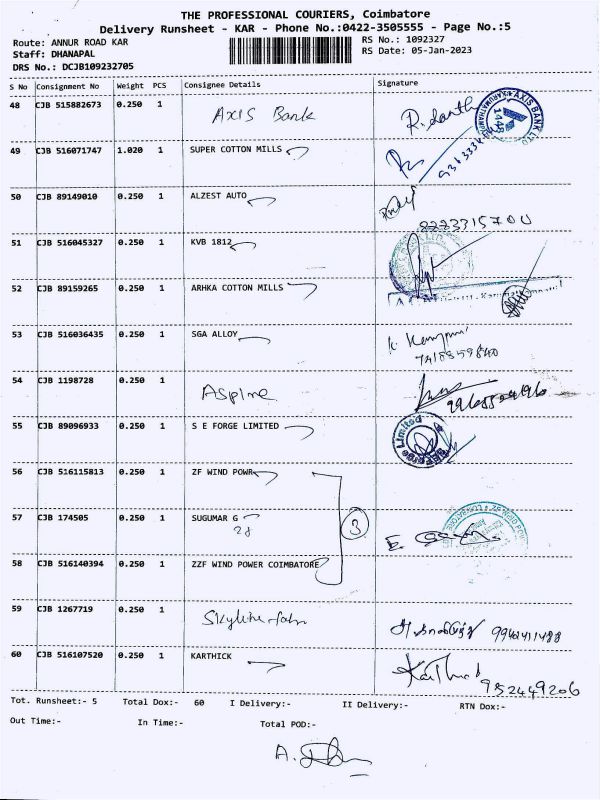 THE PROFESSIONAL COURIERS, Coimbatore
Delivery Runsheet - KAR - Phone No.:0422-3505555 - Page No.:5
Route: ANNUR ROAD KAR
Staff: DHANAPAL
DRS No.: DCJB109232705
RS No.: 1092327
RS Date: 05-Jan-2023
S No Consignment No Weight PCS Consignee Details Signature
48 CJB 515882673 0.250 1 Axis Bank
AXIS BANK LTD
1448
49 CJB 516071747 1.020 1 SUPER COTTON MILLS
50 CJB 89149010 0.250 1 ALZEST AUTO
51 CJB 516045327 0.250 1 KVB 1812
52 CJB 89159265 0.250 1 ARHKA COTTON MILLS
53 CJB 516036435 0.250 1 SGA ALLOY
54 CJB 1198728 0.250 1 Aspine
55 CJB 89096933 0.250 1 S E FORGE LIMITED
56 CJB 516115813 0.250 1 ZF WIND POWR
57 CJB 174505 0.250 1 SUGUMAR G
3
58 CJB 516140394 0.250 1 ZZF WIND POWER COIMBATORE
59 CJB 1267719 0.250 1 Skyline
60 CJB 516107520 0.250 1 KARTHICK
952449206
Tot. Runsheet:- 5 Total Dox:- 60 I Delivery:- II Delivery:- RTN Dox:-
Out Time:- In Time:- Total POD:-